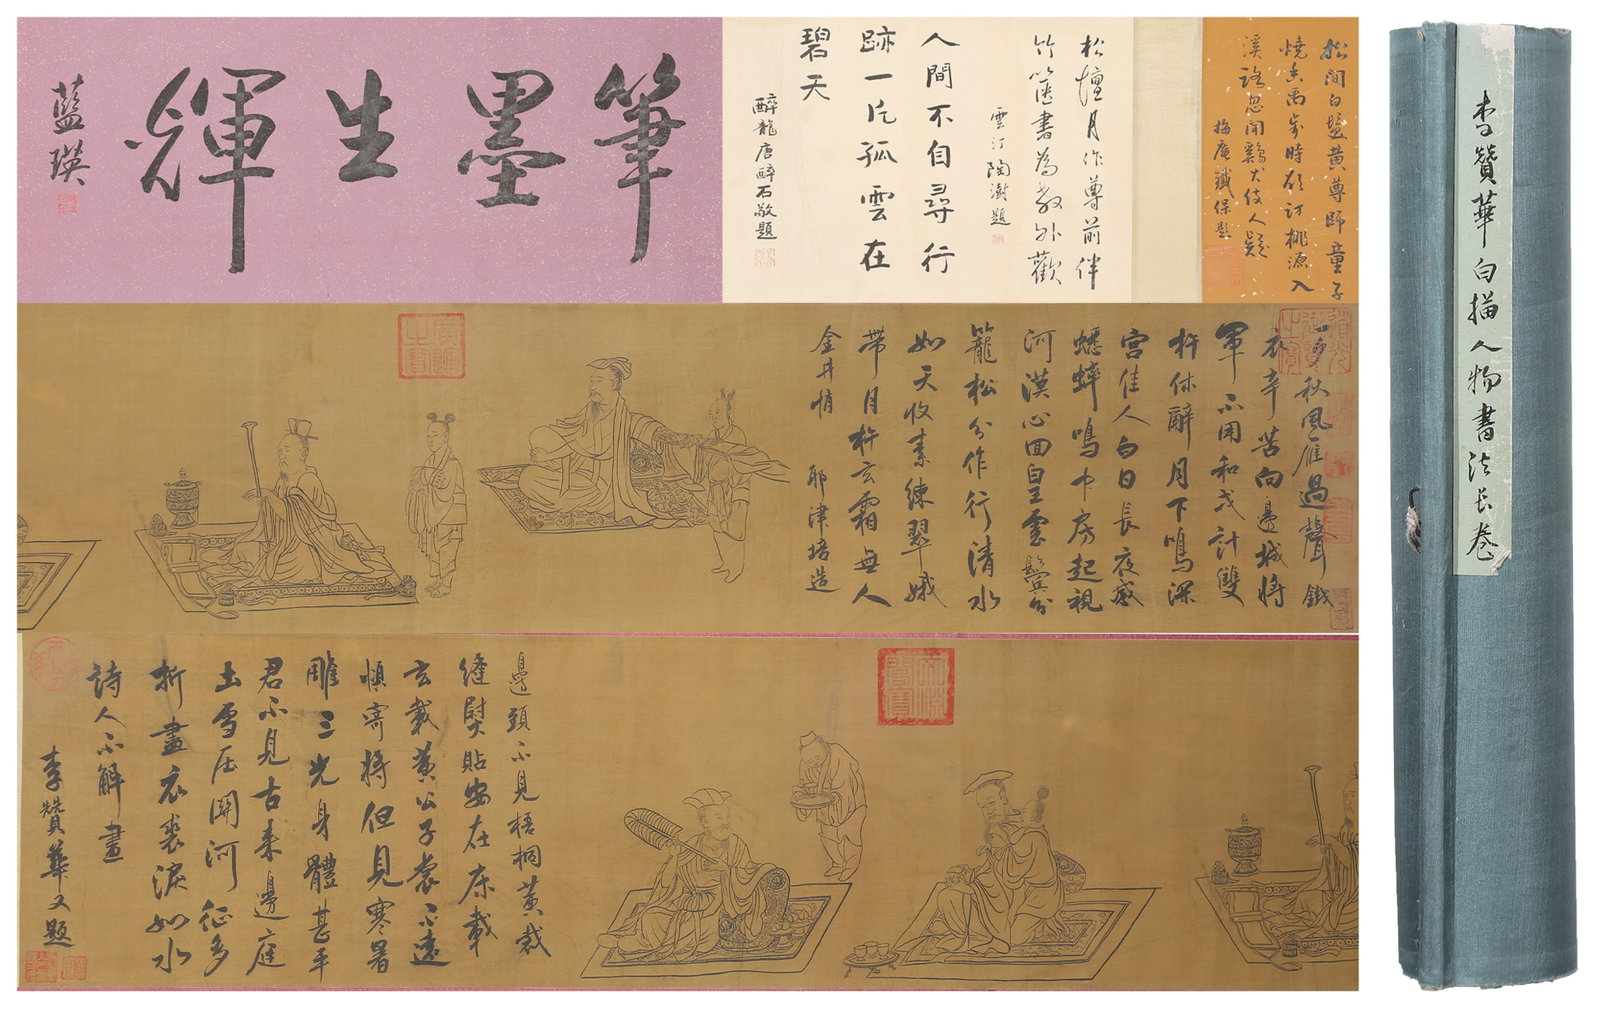 松間白髮黃尊師童子
燒香禹步時欲訪桃源入
溪路忽聞雞犬使人疑
梅庵鐵保題
松壇月作尊前伴
竹篋書為教外歡
雲汀陶澍題
人間不自尋行
跡一片孤雲在
碧天
醉龍唐醉石敬題
筆墨生輝
藍瑛
秋風雁過聲鐵
衣辛苦向邊城將
軍不用和戎計雙
杵休辭月下鳴深
宮佳人白日長夜感
蟋蟀鳴中房起視
河漢心回皇雲鬢分
籠松分作行清水
如天收素練翠娥
帶月杵玄霜無人
金井悄 耶津培造
廣運之寶
邊頭不見梧桐黃裁
縫熨貼安在床載
玄載黃公子裳不遠
慎寄將但見寒暑
雕三光身體甚平
君不見古來邊庭
土雪压關河征多
折盡衣裘淚如水
詩人不解畫
李贊華又題
李贊華白描人物書法長卷